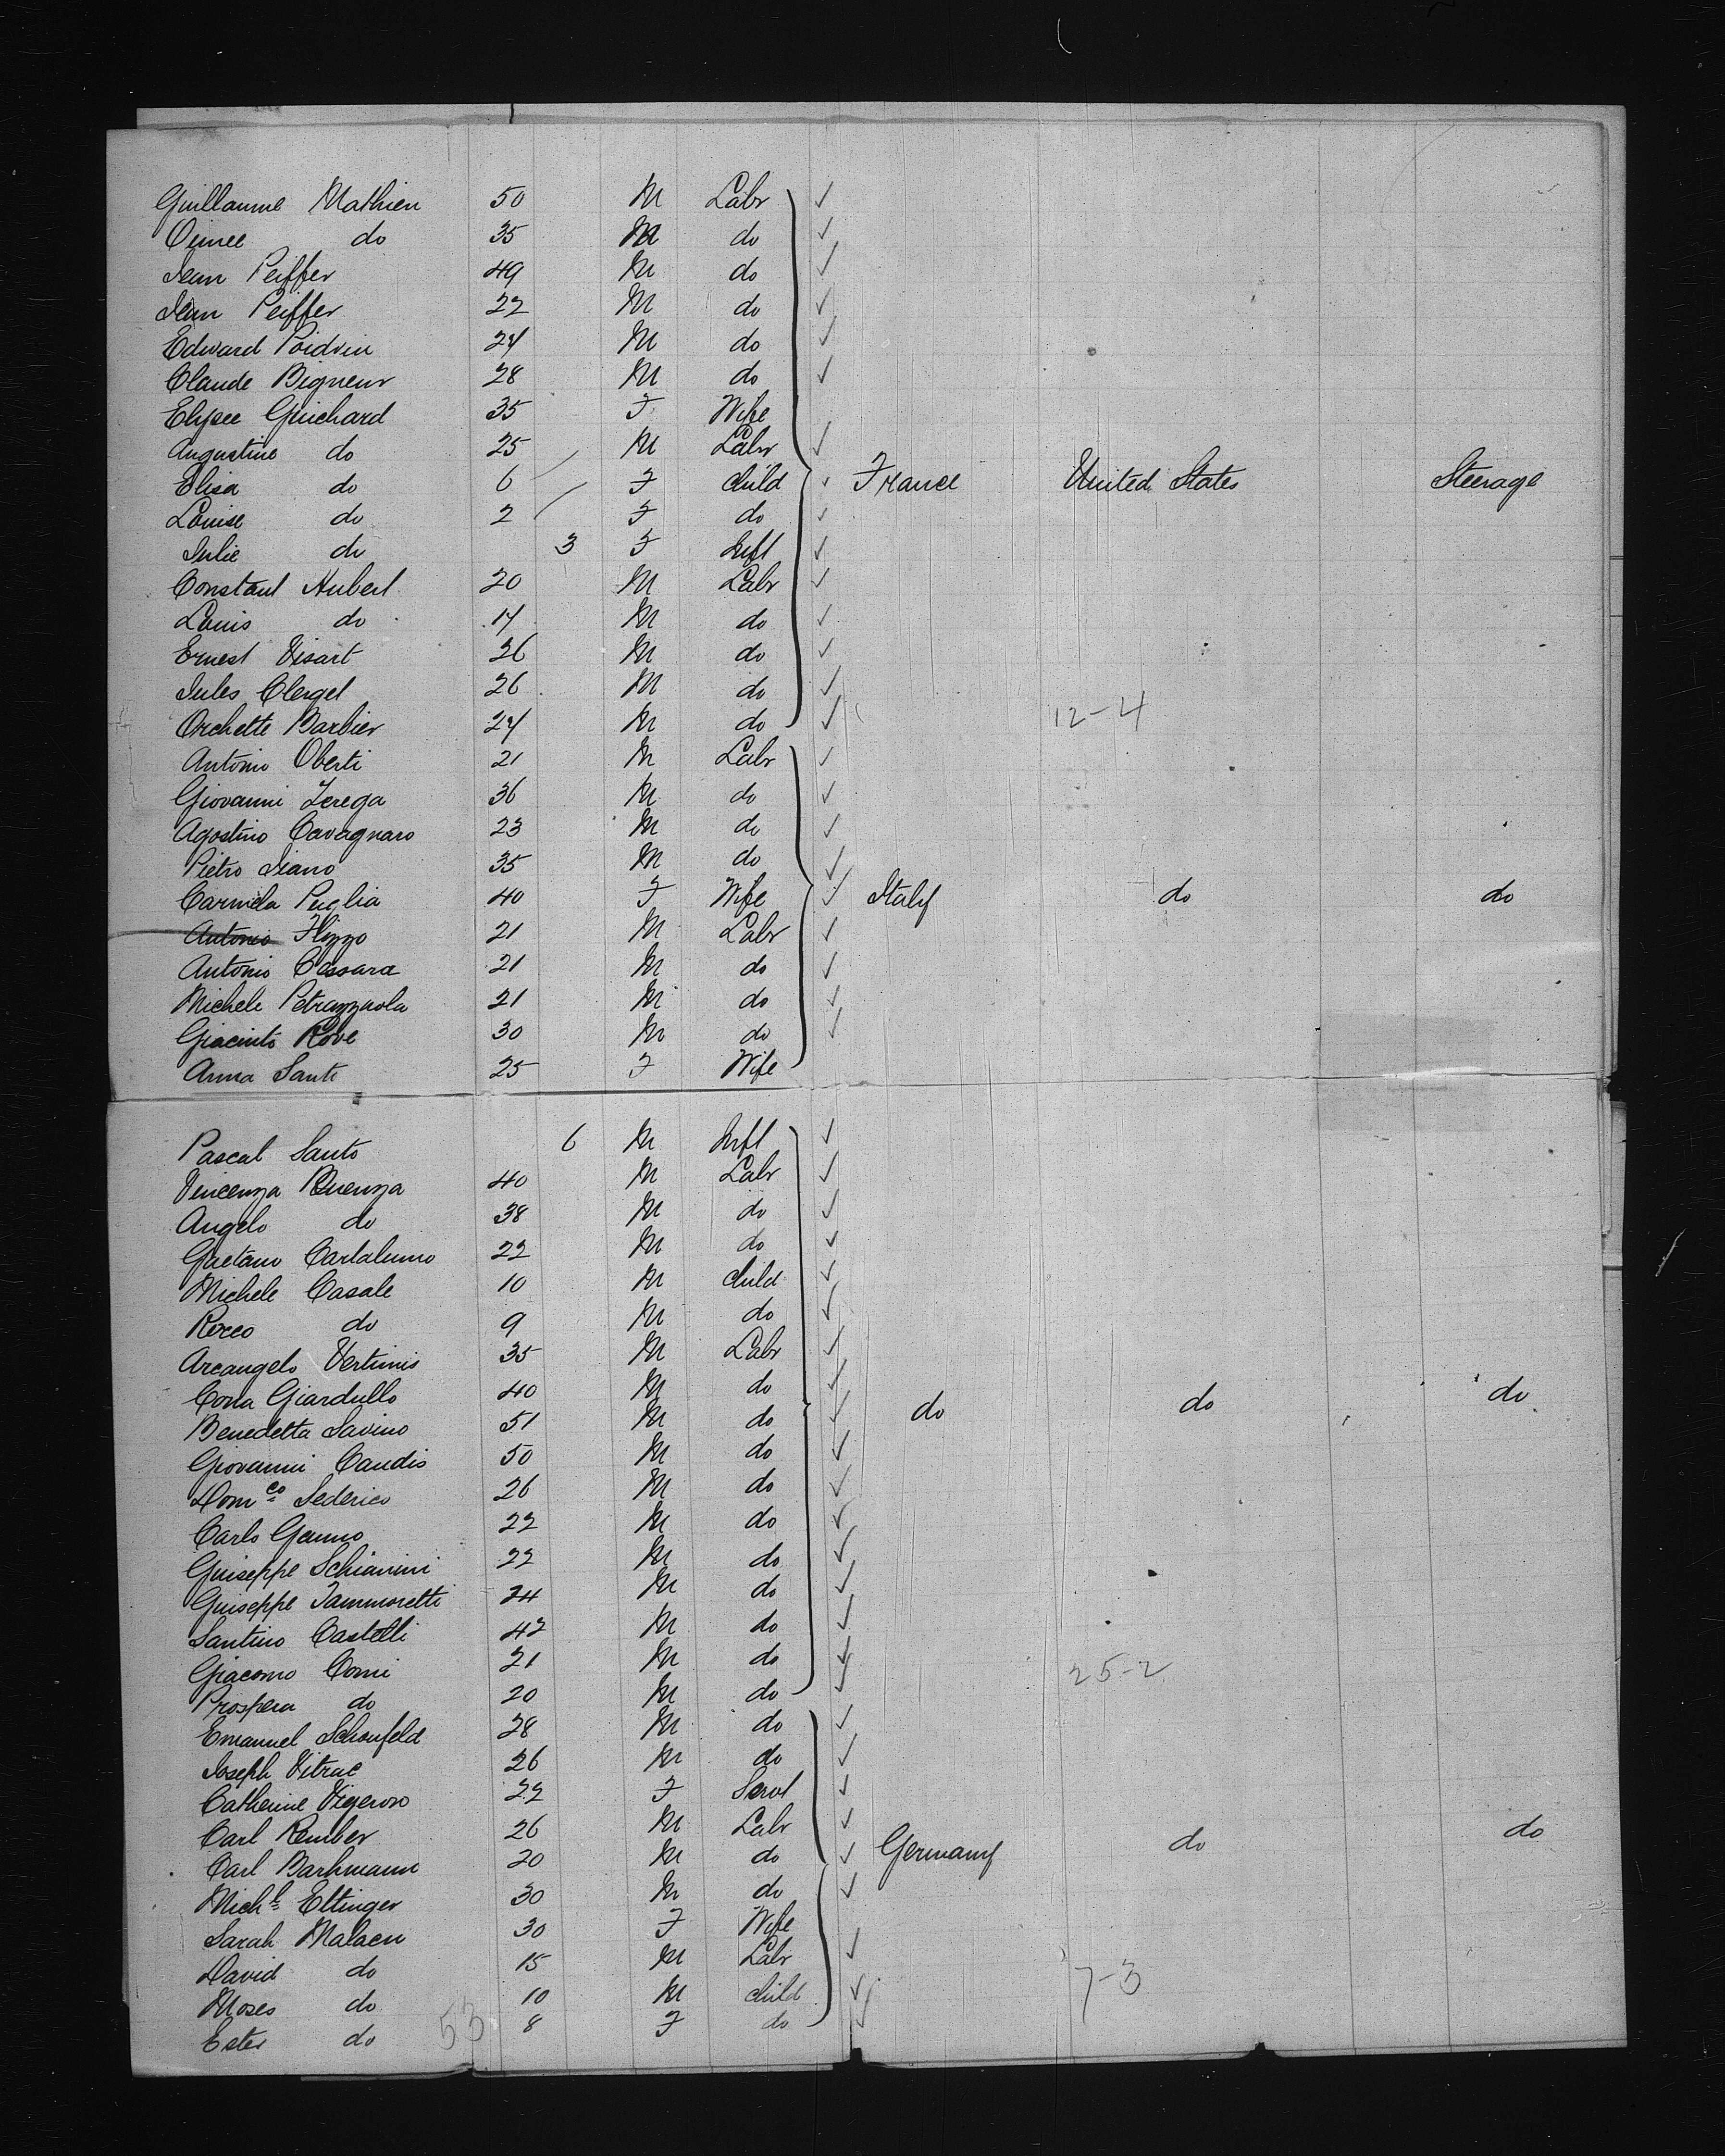 Guillaume Mathieu 50 M Labr
Aimee do 35 M do
Jean Peiffer 49 M do
Jean Peiffer 22 M do
Edward Poidvin 24 M do
Claude Bigneur 28 M do
Elysee Guichard 35 F Wife
Augustine do 25 M Labr
Elisa do 6 F child France United States Steerage
Louise do 2 F do
Julie do 3 F Inft
Constant Hubert 20 M Labr
Louis do 14 M do
Ernest Visart 26 M do
Jules Clerget 26 M do
Orchette Barbier 24 M do 12-4
Antonio Oberti 21 M Labr
Giovanni Zerega 36 M do
Agostino Cavagnaro 23 M do
Pietro Siano 35 M do
Carmela Puglia 40 F Wife Italy do do
Antonio Flizzo 21 M Labr
Antonio Cassara 21 M do
Michele Petrazzuola 21 M do
Giacinto Rove 30 M do
Anna Santi 25 F Wife
Pascal Santo 6 M Inft
Vincenza Ruenza 40 M Labr
Angelo do 38 M do
Gaetano Cartalumo 22 M do
Michele Casale 10 M child
Rocco do 9 M do
Arcangelo Vertunis 35 M Labr
Cona Giardullo 40 M do
Benedetta Savino 51 M do do do do
Giovanni Candis 50 M do
Domco Sederico 26 M do
Carlo Genno 22 M do
Guiseppe Schianini 22 M do
Guiseppe Jammoretti 24 M do
Santino Castelli 42 M do
Giacomo Comi 21 M do 25-2
Prospera do 20 M do
Emanuel Schonfeld 28 M do
Joseph Vitrac 26 M do
Catherine Vigeroso 22 F Servt
Carl Rember 26 M Labr
Carl Barhmann 20 M do Germany do do
Michl Eltinger 30 M do
Sarah Malaen 30 F Wife
David do 15 M Labr
Moses do 10 M child 7-3
Ester do 53 8 F do